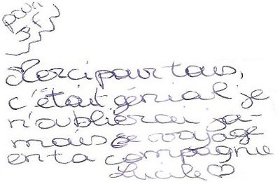 pour
Merci pour tous,
c'était génial je
n'oublierai ja-
mais ce voyage
en ta compagnie
Lucile ♡